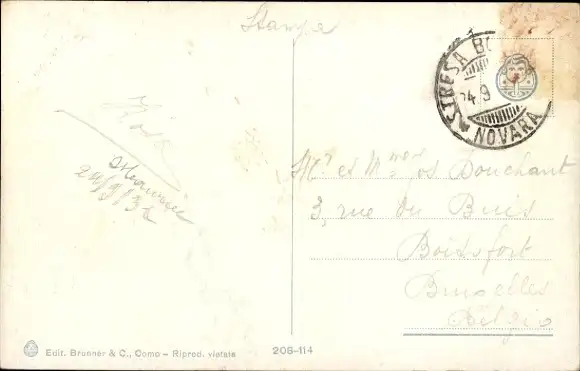 Stampa
STRESA BO
24 9
NOVARA
Maurice
24/9/32
Mr et Mme Jos Bouchant
3, rue du Buis
Boitsfort
Bruxelles
Belgio
Edit. Brunner & C., Como - Riprod. vietata
208-114